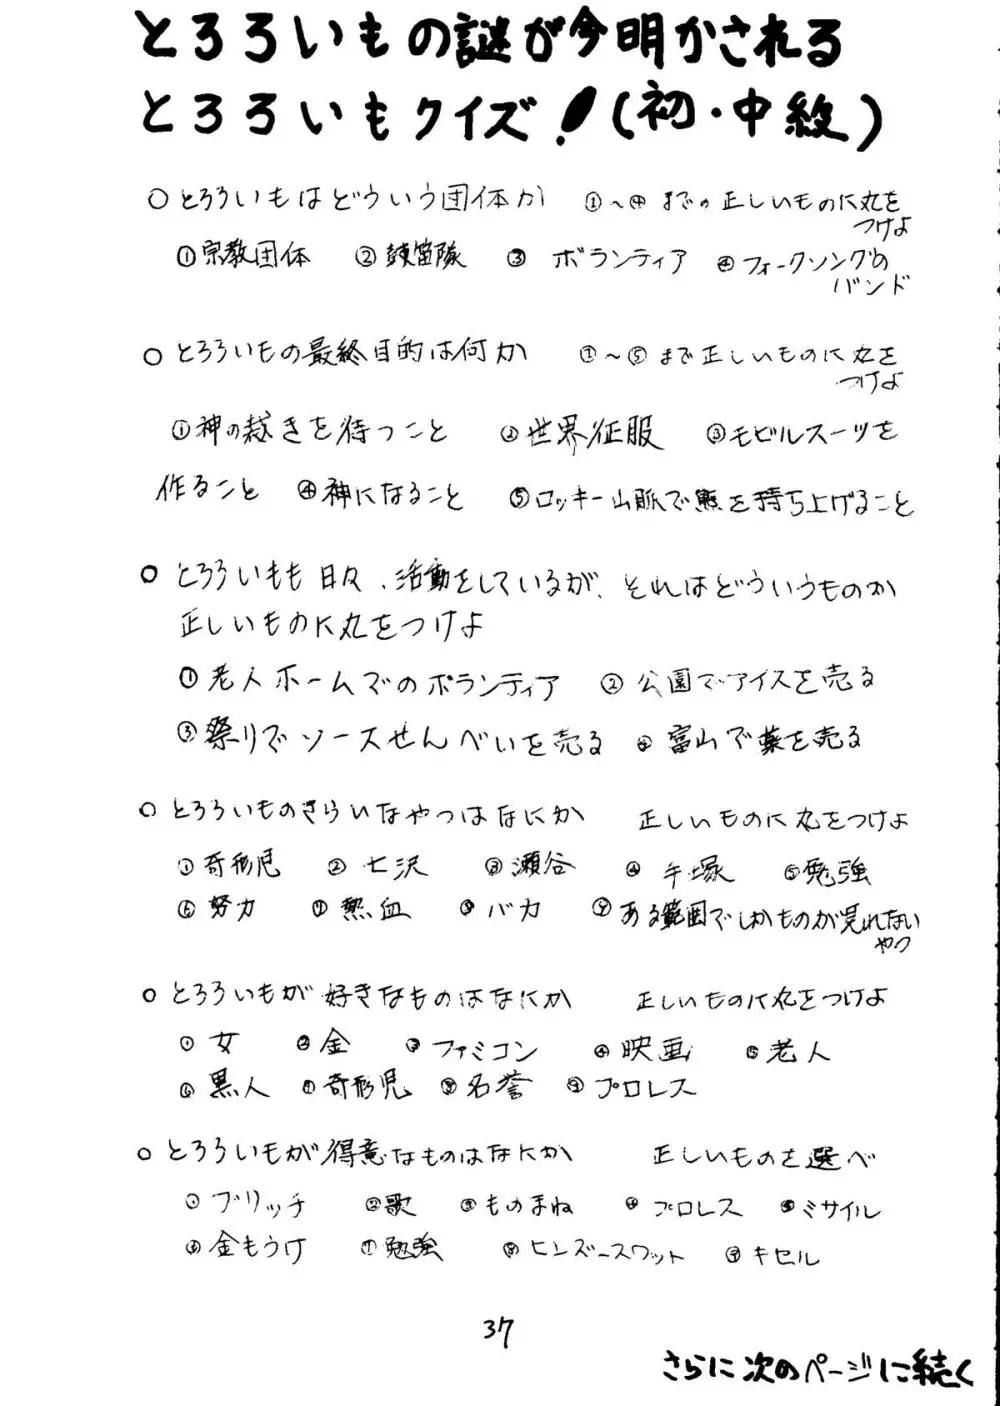 とろろいもの謎が今明かされる
とろろいもクイズ!(初・中級)
○とろろいもはどういう団体か ①〜④までの正しいものに丸を
つけよ
①宗教団体 ②鼓笛隊 ③ ボランティア ④フォークソングの
バンド
○とろろいもの最終目的は何か ①〜⑤まで正しいものに丸を
つけよ
①神の裁きを待つこと ②世界征服 ③モビルスーツを
作ること ④神になること ⑤ロッキー山脈で熊を持ち上げること
○とろろいもも日々、活動をしているが、それはどういうものか
正しいものに丸をつけよ
①老人ホームでのボランティア ②公園でアイスを売る
③祭りでソースせんべいを売る ④富山で薬を売る
○とろろいものきらいなやつはなにか 正しいものに丸をつけよ
①奇形児 ②七沢 ③瀬谷 ④手塚 ⑤勉強
⑥努力 ⑦熱血 ⑧バカ ⑨ある範囲でしかものが見れない
やつ
○とろろいもが好きなものはなにか 正しいものに丸をつけよ
①女 ②金 ③ファミコン ④映画 ⑤老人
⑥黒人 ⑦奇形児 ⑧名誉 ⑨プロレス
○とろろいもが得意なものはなにか 正しいものを選べ
①ブリッヂ ②歌 ③ものまね ④プロレス ⑤ミサイル
⑥金もうけ ⑦勉強 ⑧ヒンズースワット ⑨キセル
37
さらに次のページに続く